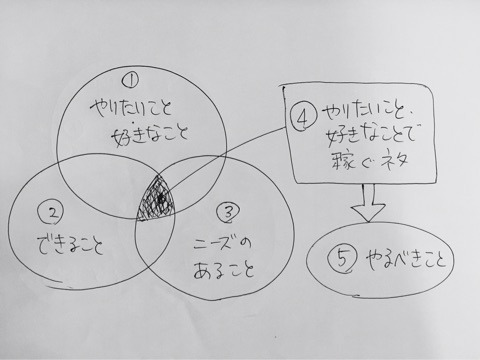 ①
やりたいこと
好きなこと
②
できること
③
ニーズの
あること
④ やりたいこと、
好きなことで
稼ぐネタ
⑤ やるべきこと